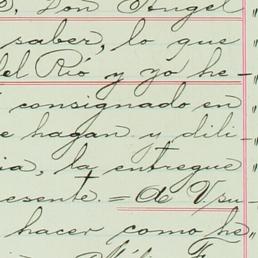 Don Angel
saber, lo que
del Rió y yo he-
consignado en
e hagan y dili-
ia, la entregue
esente. = de V su-
hacer como he